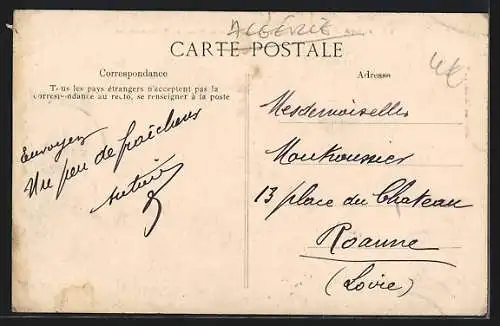 ALGÉRIE
CARTE POSTALE
Correspondance
Tous les pays étrangers n'acceptent pas la
correspondance au recto, se renseigner à la poste
Envoyez
Un peu de fraîcheur
Adresse
Mesdemoiselles
13 place du Chateau
Roanne
(Loire)